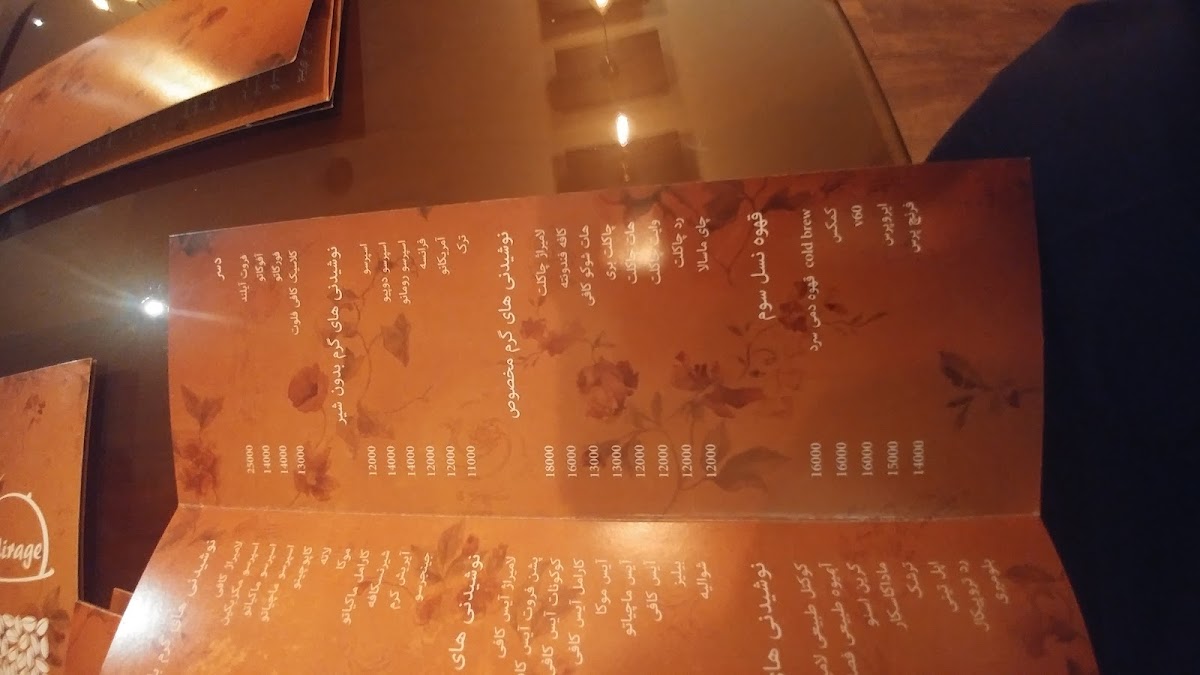 دسر
فروت آیلند 25000
آفوگاتو 14000
فورگاتو 14000
کلاسیک کافی فلوت 13000
نوشیدنی های گرم بدون شیر
اسپرسو 12000
اسپرسو دوپیو 14000
اسپرسو رومانو 14000
فرانسه 12000
آمریکانو 12000
ترک 11000
نوشیدنی های گرم مخصوص
لامیراژ چاکلت 18000
کافه فندونته 16000
هات شوکو کافی 13000
چاکلت بری 13000
هات چاکلت 12000
وایت چاکلت 12000
رد چاکلت 12000
چای ماسالا 12000
قهوه نسل سوم
قهوه دمی سرد cold brew 16000
کمکس 16000
v60 16000
ایروپرس 15000
فرنچ پرس 14000
نوشیدنی های گرم
لامیراژ کافی
اسپرسو مکزیکین
اسپرسو ماکیاتو
اسپرسو ماچیاتو
کاپوچینو
لاته
موکا
کارامل ماکیاتو
شیرنسکافه
آیریش کرم
جینجرسو
نوشیدنی های
لامیراژ آیس کافی
پشن فروت آیس
کوکونات آیس کافی
کارامل آیس کافی
آیس موکا
آیس ماچیاتو
آیس کافی
بیلیز
شوالیه
نوشیدنی
کوکتل طبیعی
آبمیوه طبیعی
گرین اسنو
ماداگاسکار
اپل مینی
رد تروپیکال
بلوبری